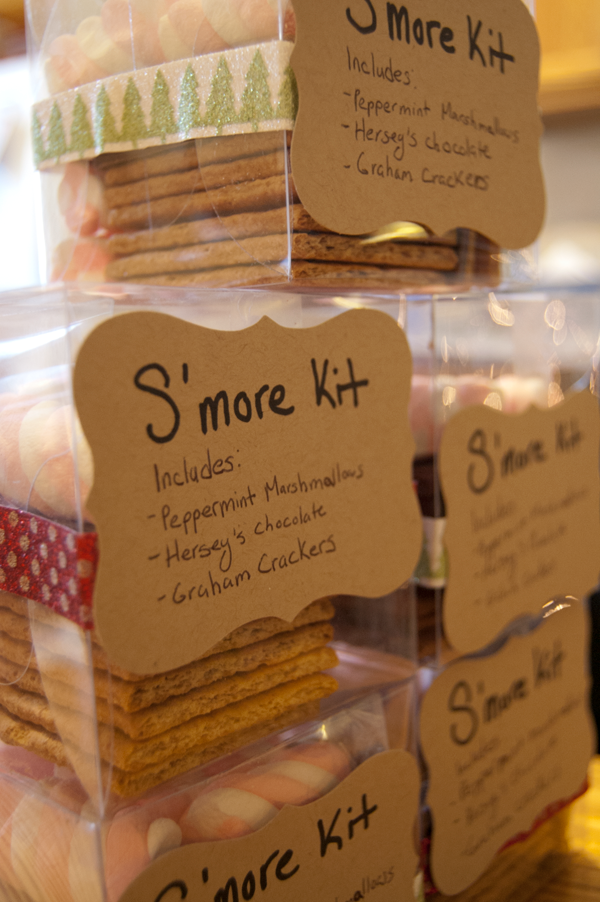 S'more Kit
Includes:
-Peppermint Marshmallows
-Hersey's chocolate
-Graham Crackers
S'more Kit
Includes:
-Peppermint Marshmallows
-Hersey's chocolate
-Graham Crackers
S'more Kit
Includes
S'more Kit
Includes
S'more Kit